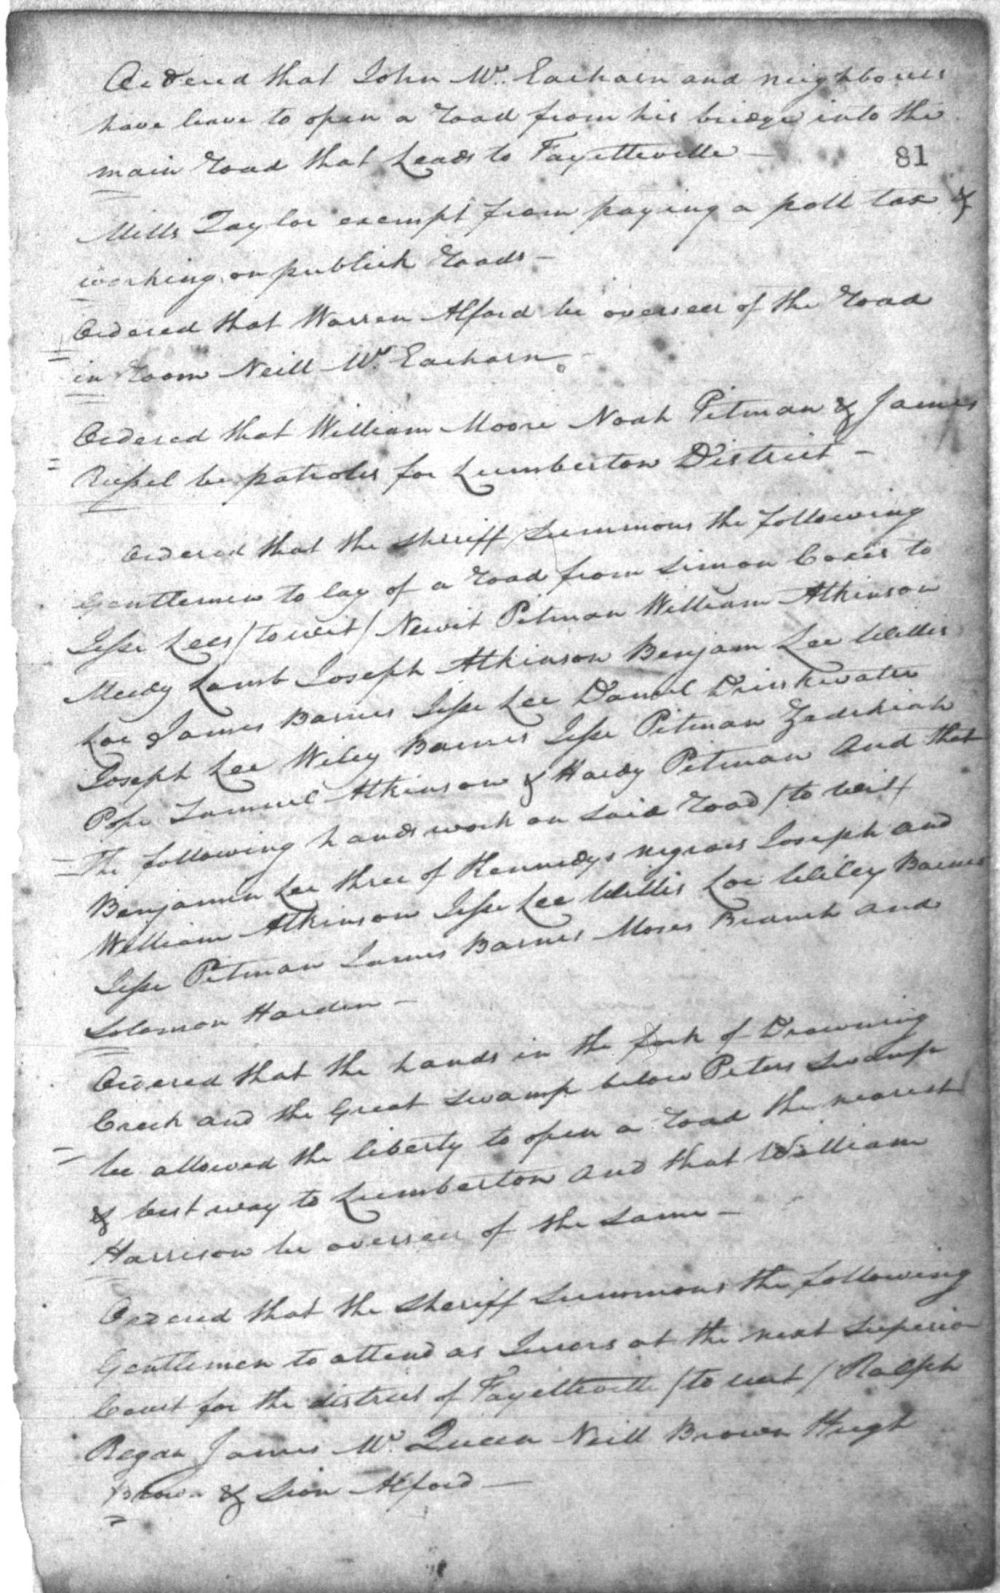 Ordered that John Mc. Eacharn and neighbours
have leave to open a road from his bridge into the
main road that Leads to Fayetteville —
81
Mills Taylor exempt from paying a poll tax &
working on publick roads —
Ordered that Warren Alford be overseer of the road
in room Neill Mc. Eacharn
Ordered that William Moore Noah Pitman & James
Russel be patroles for Lumberton District —
Ordered that the sheriff summons the following
Gentlemen to lay of a road from Simon Coxes to
Jesse Lees / to wit / Newit Pitman William Atkinson
Meedy Lamb Joseph Atkinson Benjam Lee Willis
Loe & James Barnes Jesse Lee Daniel Drinkwater
Joseph Lee Wiley Barnes Jesse Pitman Zedekiah
Pope Samuel Atkinson & Hardy Pitman And that
The following hands work on said road / to wit /
Benjamin Lee three of Kennedys negroes Joseph and
William Atkinson Jesse Lee Willis Loe Wiley Barnes
Jesse Pitman James Barnes Moses Branch and
Solomon Harden —
Ordered that the hands in the fork of Drowning
Creek and the Great swamp below Peters swamp
be allowed the liberty to open a road the nearest
& best way to Lumberton And that William
Harrison be overseer of the same —
Ordered that the sheriff summons the following
Gentlemen to attend as Jurors at the next Superior
Court for the district of Fayetteville / to wit / Ralph
Regan James Mc. Queen Neill Brown Hugh
Brown & Sion Alford —